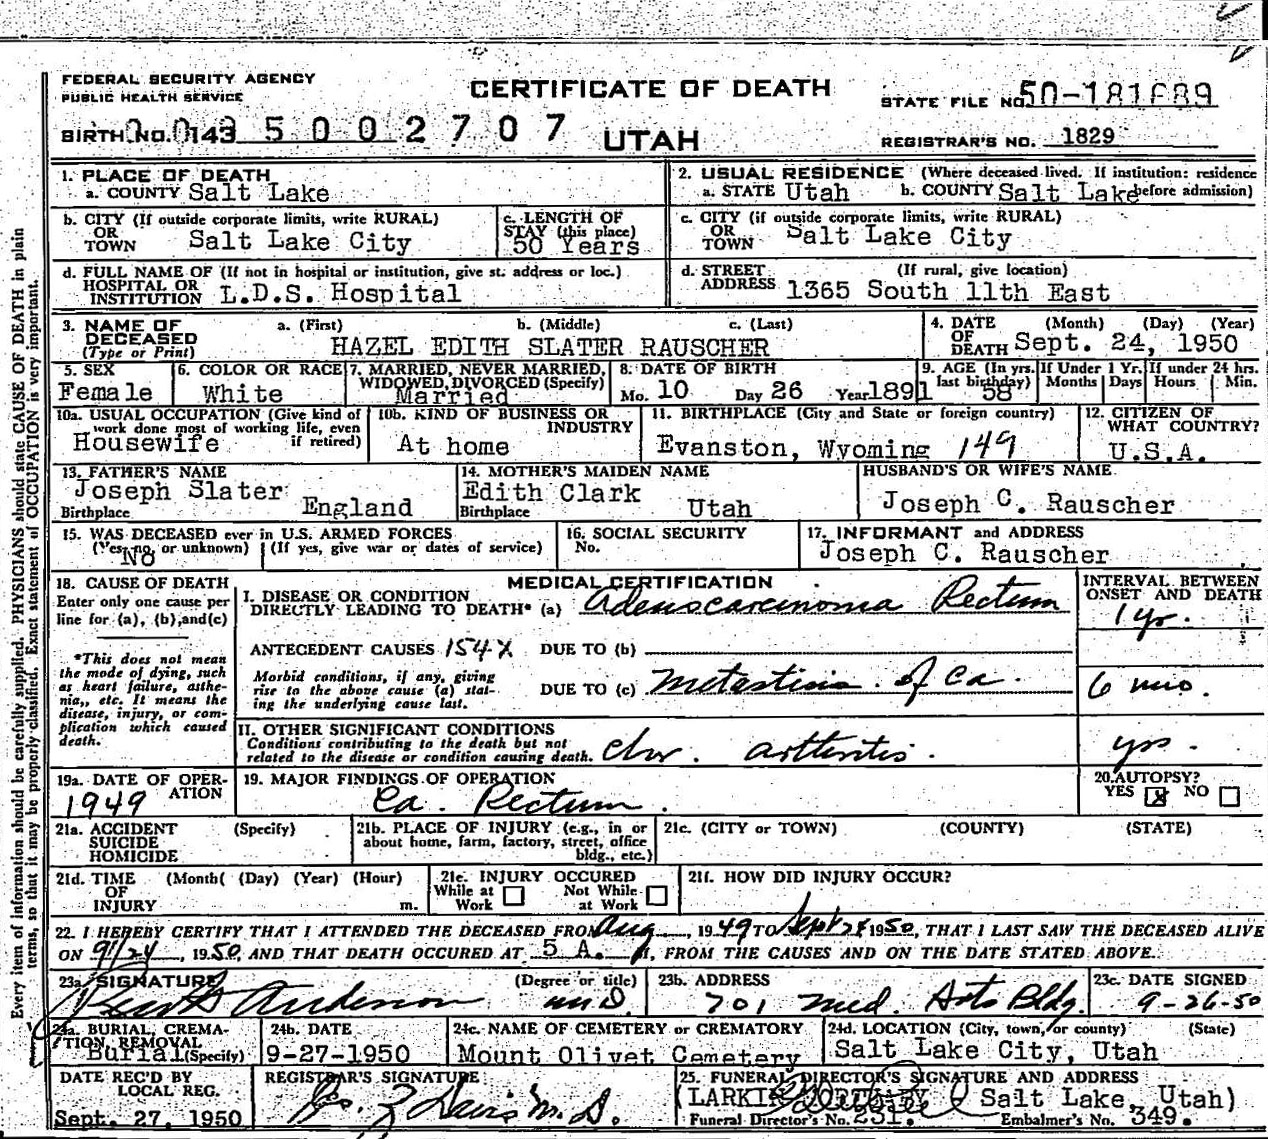 FEDERAL SECURITY AGENCY
PUBLIC HEALTH SERVICE
CERTIFICATE OF DEATH
STATE FILE NO. 50-181689
BIRTH NO. 143 5 0 0 2 7 0 7
UTAH
REGISTRAR'S NO. 1829
1. PLACE OF DEATH
a. COUNTY Salt Lake
2. USUAL RESIDENCE (Where deceased lived. If institution: residence before admission)
a. STATE Utah b. COUNTY Salt Lake
b. CITY (If outside corporate limits, write RURAL) OR TOWN Salt Lake City
c. LENGTH OF STAY (this place) 50 Years
c. CITY (if outside corporate limits, write RURAL) OR TOWN Salt Lake City
d. FULL NAME OF (If not in hospital or institution, give st. address or loc.) HOSPITAL OR INSTITUTION L.D.S. Hospital
d. STREET ADDRESS (If rural, give location) 1365 South 11th East
3. NAME OF DECEASED (Type or Print) a. (First) b. (Middle) c. (Last)
HAZEL EDITH SLATER RAUSCHER
4. DATE OF DEATH (Month) (Day) (Year) Sept. 24, 1950
5. SEX Female
6. COLOR OR RACE White
7. MARRIED, NEVER MARRIED, WIDOWED, DIVORCED (Specify) Married
8. DATE OF BIRTH Mo. 10 Day 26 Year 1891
9. AGE (In yrs. last birthday) 58 If Under 1 Yr. Months Days If under 24 hrs. Hours Min.
10a. USUAL OCCUPATION (Give kind of work done most of working life, even if retired) Housewife
10b. KIND OF BUSINESS OR INDUSTRY At home
11. BIRTHPLACE (City and State or foreign country) Evanston, Wyoming 149
12. CITIZEN OF WHAT COUNTRY? U.S.A.
13. FATHER'S NAME Joseph Slater
Birthplace England
14. MOTHER'S MAIDEN NAME Edith Clark
Birthplace Utah
HUSBAND'S OR WIFE'S NAME Joseph C. Rauscher
15. WAS DECEASED ever in U.S. ARMED FORCES (Yes, no, or unknown) (If yes, give war or dates of service) No
16. SOCIAL SECURITY No.
17. INFORMANT and ADDRESS Joseph C. Rauscher
18. CAUSE OF DEATH
Enter only one cause per line for (a), (b), and (c)
*This does not mean the mode of dying, such as heart failure, asthenia, etc. It means the disease, injury, or complication which caused death.
MEDICAL CERTIFICATION
INTERVAL BETWEEN ONSET AND DEATH
I. DISEASE OR CONDITION DIRECTLY LEADING TO DEATH* (a) Adenocarcinoma Rectum 1 yr.
ANTECEDENT CAUSES 154X DUE TO (b)
Morbid conditions, if any, giving rise to the above cause (a) stating the underlying cause last. DUE TO (c) Metastisis of Ca. 6 mos.
II. OTHER SIGNIFICANT CONDITIONS
Conditions contributing to the death but not related to the disease or condition causing death. Chr. arthritis. yrs.
19a. DATE OF OPERATION 1949
19. MAJOR FINDINGS OF OPERATION Ca. Rectum.
20. AUTOPSY? YES ☒ NO ☐
21a. ACCIDENT SUICIDE HOMICIDE (Specify)
21b. PLACE OF INJURY (e.g., in or about home, farm, factory, street, office bldg., etc.)
21c. (CITY or TOWN) (COUNTY) (STATE)
21d. TIME OF INJURY (Month) (Day) (Year) (Hour) m.
21e. INJURY OCCURED While at Work ☐ Not While at Work ☐
21f. HOW DID INJURY OCCUR?
22. I HEREBY CERTIFY THAT I ATTENDED THE DECEASED FROM Aug, 1949 TO Sept 24 1950, THAT I LAST SAW THE DECEASED ALIVE
ON 9/24, 1950 AND THAT DEATH OCCURED AT 5 A. M, FROM THE CAUSES AND ON THE DATE STATED ABOVE.
23a. SIGNATURE Anderson (Degree or title) M.D.
23b. ADDRESS 701 Med. Arts Bldg.
23c. DATE SIGNED 9-26-50
24a. BURIAL, CREMATION, REMOVAL (Specify) Burial
24b. DATE 9-27-1950
24c. NAME OF CEMETERY or CREMATORY Mount Olivet Cemetery
24d. LOCATION (City, town, or county) (State) Salt Lake City, Utah
DATE REC'D BY LOCAL REG. Sept. 27, 1950
REGISTRAR'S SIGNATURE Davis M.D.
25. FUNERAL DIRECTOR'S SIGNATURE AND ADDRESS
(LARKIN Salt Lake, Utah)
Funeral Director's No. 231. Embalmer's No. 349.
Every item of information should be carefully supplied. PHYSICIANS should state CAUSE OF DEATH in plain
terms, so that it may be properly classified. Exact statement of OCCUPATION is very important.